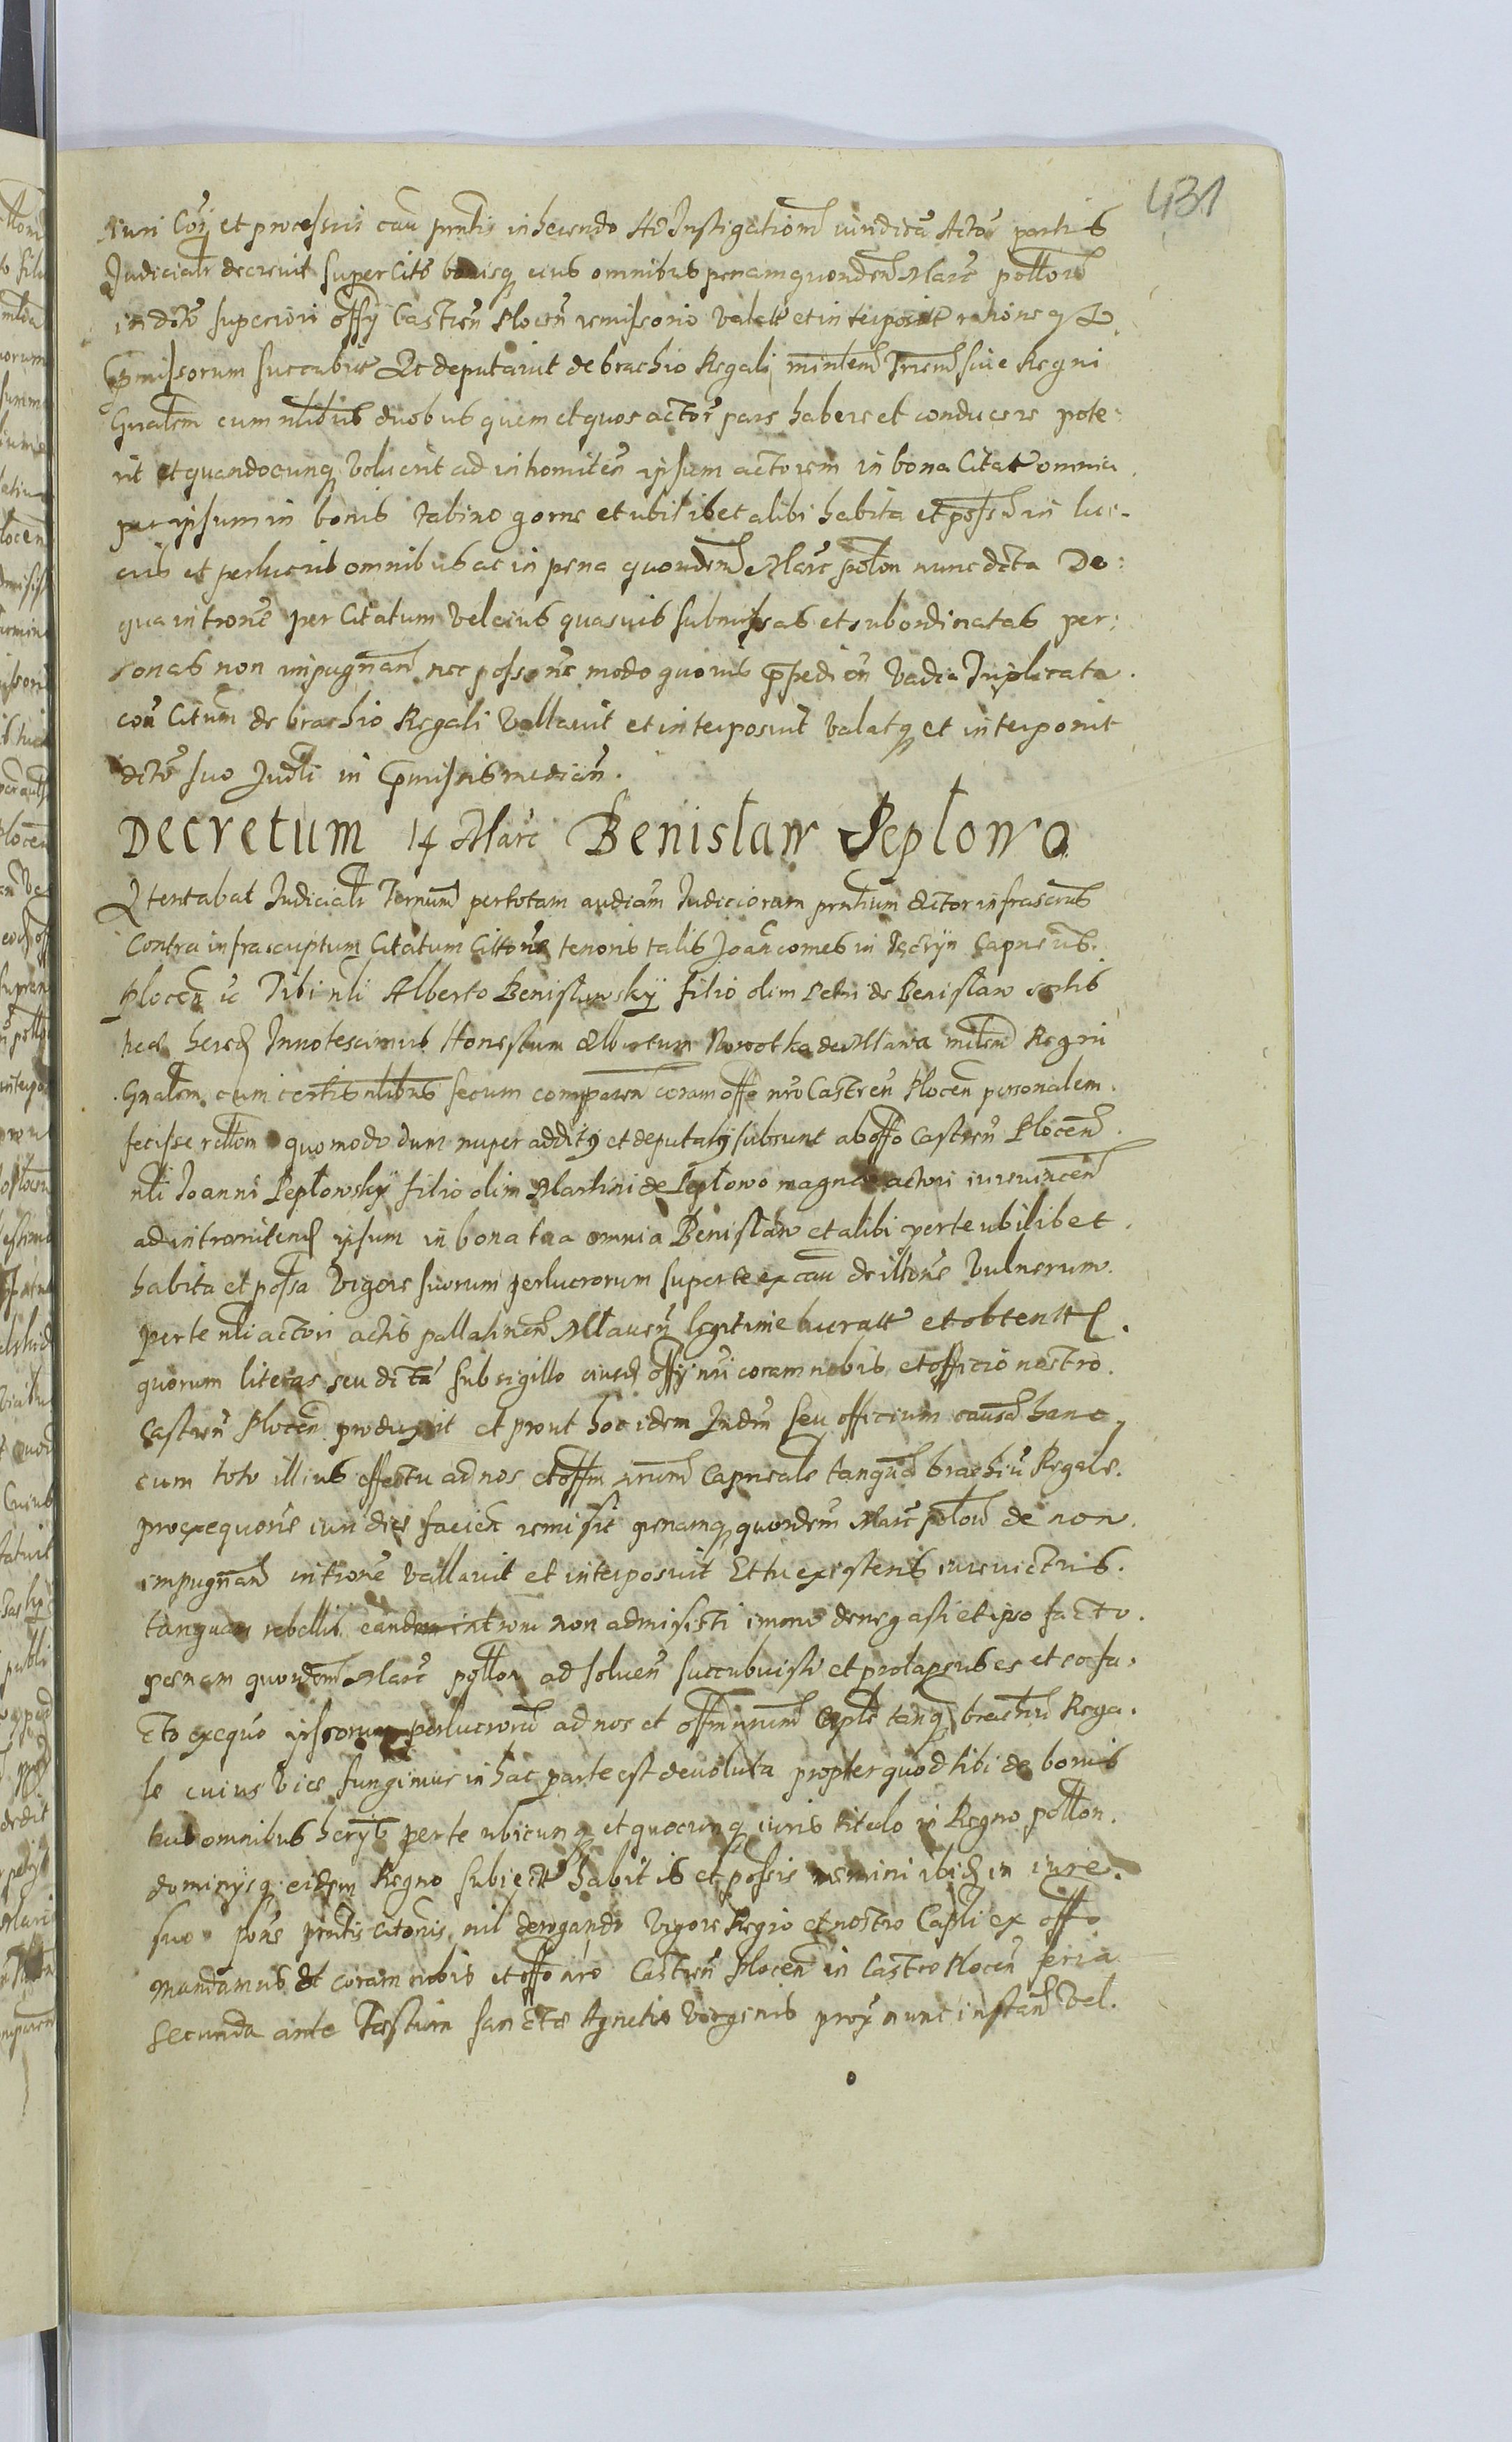 431
iuri Coi et processui cau prntis inherendo Ad Instigationem iuridica Actor partis
Judicialr decrevit super Cito bonisq eius omnibus penam quondem Marc pollon
in dcto superiori offy Castren Plocen remissorio valatt et interposit ratione q
pmissorum succubuit Et deputavit de brachio Regali minlem Trem sive Regni
Gnalem cum nlibus duobus quem et quos actor pars habere et conducere pote:
rit et quandocunq voluerit ad intromiten ipsum actorem in bona Citat omnia
per ipsum in bonis Rabino gorne et ubilibet alibi habita et possd in luc-
cris et perlucris omnibus ac in pena quondem Marc polon nunc dcta De:
qua introne per Citatum vel eius quasvis submissas et subordinatas per:
sonas non impugnand nec possone modo quovis pfedien Vadia Triplicata
con Citum de brachio Regali Vallavit et interposuit valatq et interponit
dcto suo Judli in pmissis median.
Decretum 14 Marc Benisław Pepłowo
Attentabat Judicialr Termnum per totam audiam Judiciorum prntium Actor infrascrus
Contra infrascriptum Citatum Cittone tenoris talis Joan comes in Tęczyn Capneus
Plocen ic Tibi nli Alberto Benisławsky filio olim Petri de Benisław sortis
hered Innotescimus Honestum Albertum Nowotka de Mława milem Regni
Gnalem cum certis nlibus secum comparen coram offo nro Castren Plocen personalem
fecisse rellom quomodo dum nuper additg et deputatg subsunt ab offo Castren Plocen
nli Joanni Pepłowsky filio olim Martini de Pepłowo magna actori iurevincen
ad intromitend ipsum in bona tua omnia Benisław et alibi per te ubilibet
habita et possa vigore suorum perlucrorum super te ex cau de illone vulnerum
per te nli actori actis pallatinen Mlaven legitime lucratt et obtentt
quorum literas seu dcta sub sigillo eiusd offy nri coram nobis et officio nostro
Castren Plocen produxit et prout hoc idem Judm seu officium causd hanc
cum toto illius effectu ad nos et offm nrum Capneale tanqud brachiu Regale
pro exequone iurudice faciend remisit penamq quondem Marc polon de non
impugnand introne vallavit et interposuit Et tu existens iurevictus
tanquam rebellis eandem introm non admisisti imone denegasti et ipso facto
penam quondem Marc pollon ad solven succubuisti et prolapsus es et eo fa:
cto exequo ipsorum perlucrorum ad nos et offm nrum Caple tanq brachiu Rega
le cuius vice fungimur in hac parte est devoluta propter quod tibi de bonis
tuis omnibus herys per te ubicunq et quocunq iuris titulo in Regno pollon
dominysq eidem Regno subiectt habitis et possis nemini ibid in iure
suo pons prntis citonis nil derogando vigore Regio et nostro Capli ex offo
mandamus Et coram nobis et offo nro Castren Plocen in Castro Plocen feria
secunda ante Festum sanctae Agnetis Virginis prox nunc instand vel